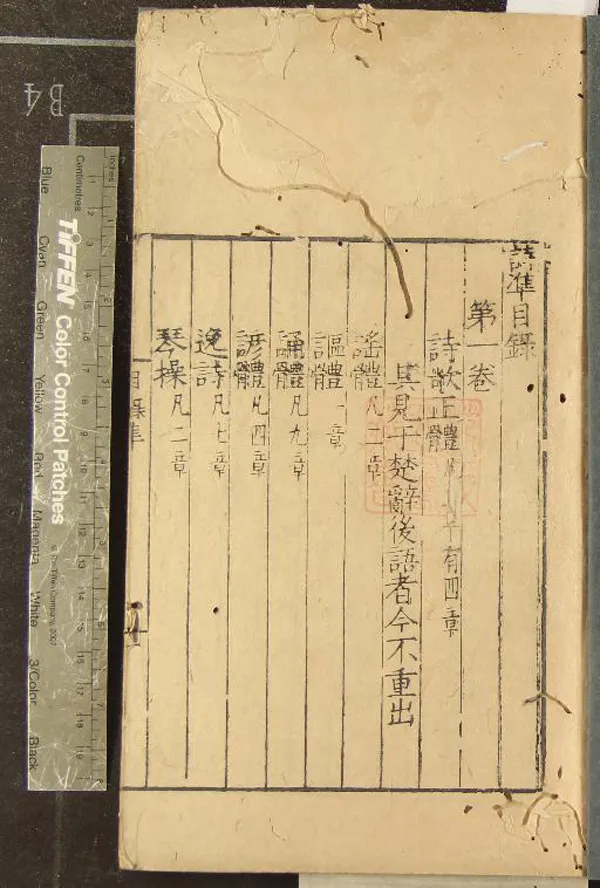 詩準目錄
第一卷
詩歌正體凡 十有四章
其見于楚辭後語者今不重出
謠體凡二章
謳體一章
誦體凡九章
諺體凡四章
逸詩凡七章
琴操凡二章
目錄準
B4
Inches
Centimetres
TIFFEN Color Control Patches
© The Tiffen Company, 2007
Blue
Cyan
Green
Yellow
Red
Magenta
White
3/Color
Black